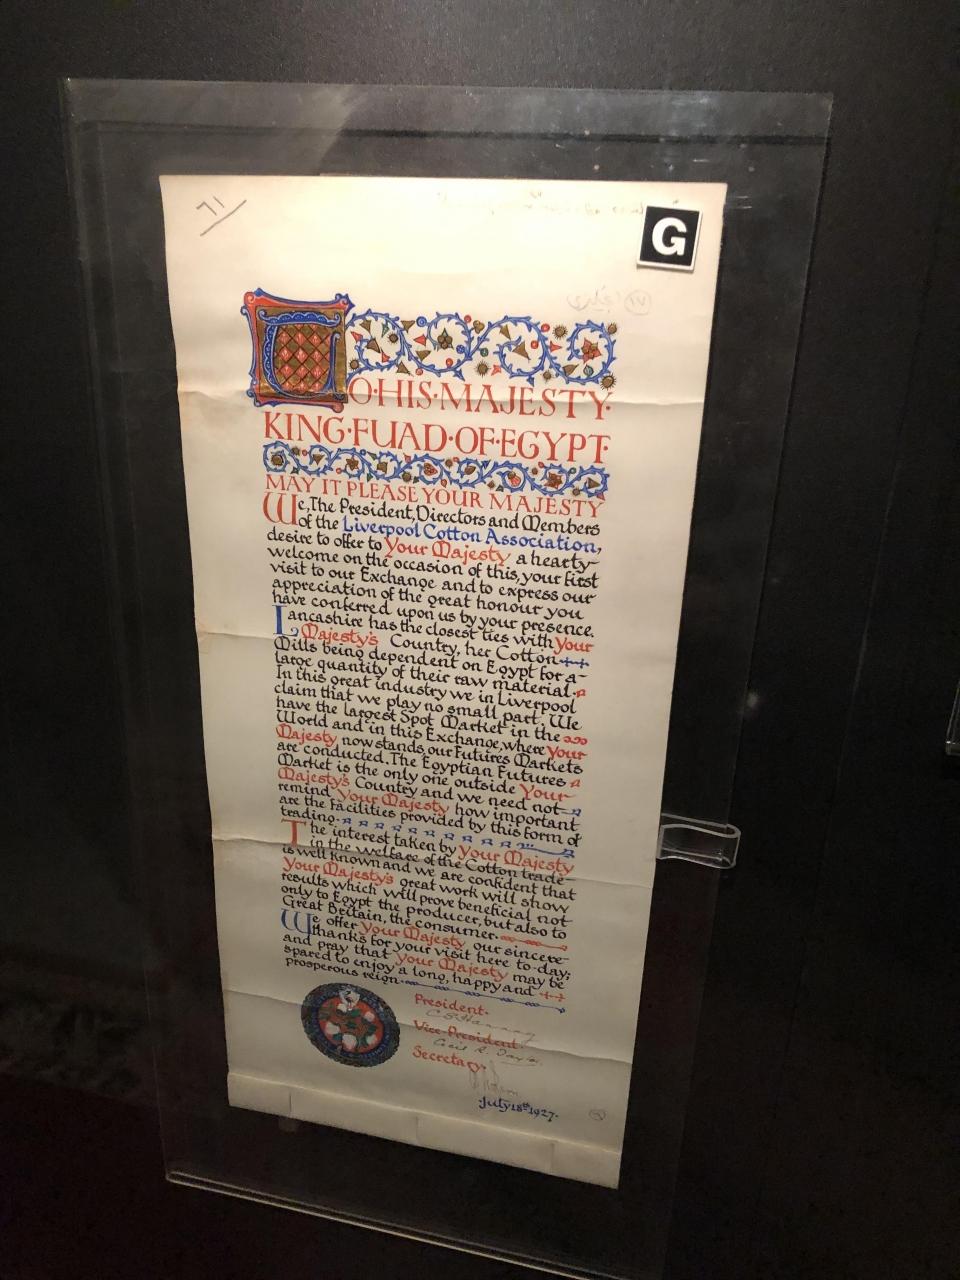 ٦١
G
TO·HIS·MAJESTY·
KING·FUAD·OF·EGYPT·
MAY IT PLEASE YOUR MAJESTY
We, The President, Directors and Members
of the Liverpool Cotton Association,
desire to offer to Your Majesty a hearty
welcome on the occasion of this, your first
visit to our Exchange and to express our
appreciation of the great honour you
have conferred upon us by your presence.
Lancashire has the closest ties with Your
Majesty's Country, her Cotton
Mills being dependent on Egypt for a
large quantity of their raw material.
In this great industry we in Liverpool
claim that we play no small part. We
have the largest Spot Market in the
World and in this Exchange, where Your
Majesty now stands, our Futures Markets
are conducted. The Egyptian Futures
Market is the only one outside Your
Majesty's Country and we need not
remind Your Majesty how important
are the facilities provided by this form of
trading.
The interest taken by Your Majesty
in the welfare of the Cotton trade
is well known and we are confident that
Your Majesty's great work will show
results which will prove beneficial not
only to Egypt the producer, but also to
Great Britain, the consumer.
We offer Your Majesty our sincere
thanks for your visit here to-day;
and pray that Your Majesty may be
spared to enjoy a long, happy and
prosperous reign.
President.
Vice-President.
Cecil R. Taylor
Secretary.
July 18th 1927.